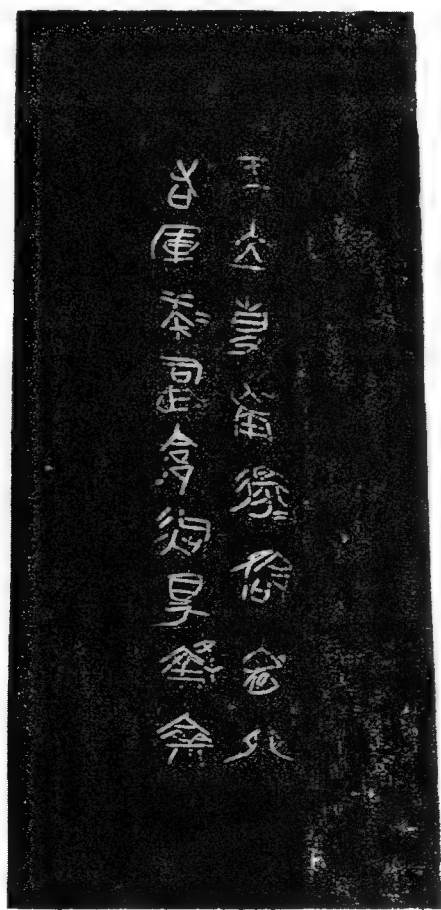 王立事南行昜命瞿卯
左庫工師司馬郃冶导執齊